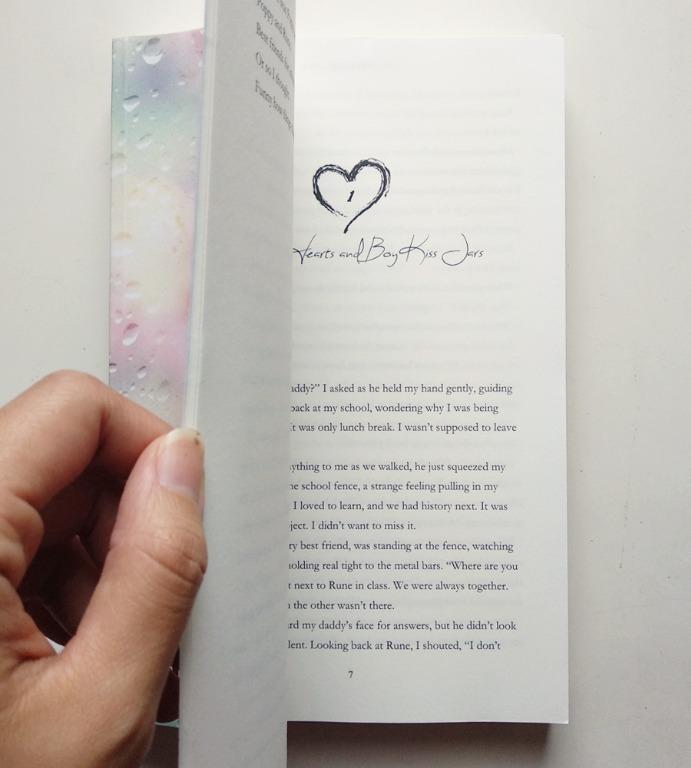 Poppy and
Best friends for
Or so I thought.
Funny how
1
Hearts and Boy Kiss Jars
addy?” I asked as he held my hand gently, guiding
back at my school, wondering why I was being
It was only lunch break. I wasn’t supposed to leave
ything to me as we walked, he just squeezed my
he school fence, a strange feeling pulling in my
I loved to learn, and we had history next. It was
ject. I didn’t want to miss it.
ry best friend, was standing at the fence, watching
holding real tight to the metal bars. “Where are you
t next to Rune in class. We were always together.
the other wasn’t there.
rd my daddy’s face for answers, but he didn’t look
lent. Looking back at Rune, I shouted, “I don’t
7